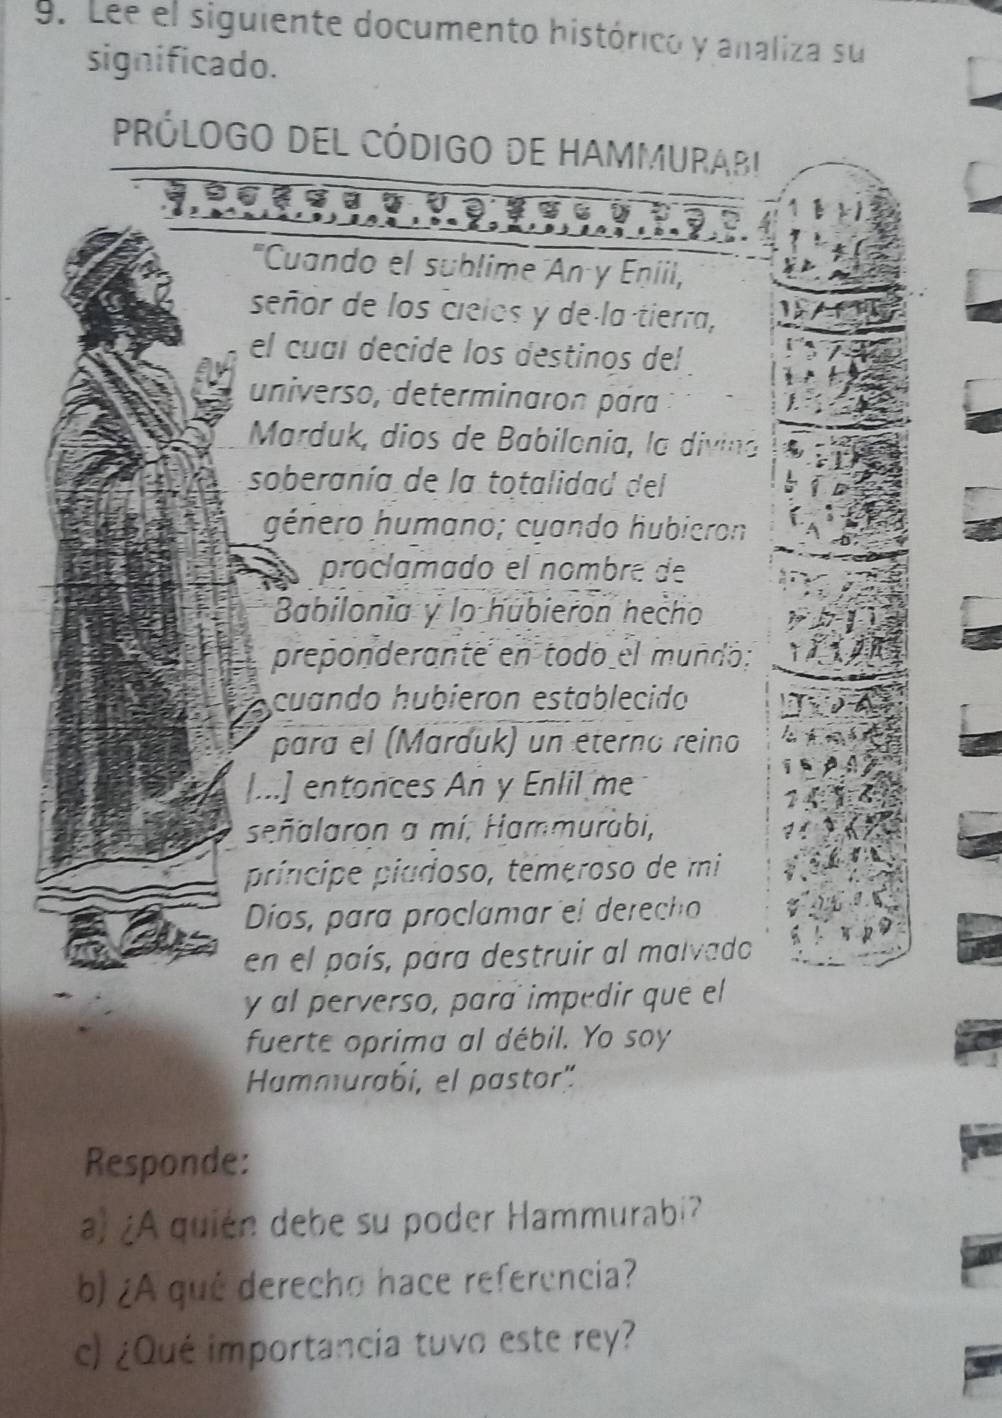 9. Lee el siguiente documento histórico y analiza su
significado.
PRÓLOGO DEL CÓDIGO DE HAMMURABI
"Cuando el sublime An y Enlil,
señor de los cielos y de la tierra,
el cual decide los destinos del
universo, determinaron para
Marduk, dios de Babilonia, la divina
soberanía de la totalidad del
género humano; cuando hubieron
proclamado el nombre de
Babilonia y lo hubieron hecho
preponderante en todo el mundo;
cuando hubieron establecido
para el (Marduk) un eterno reino
[...] entonces An y Enlil me
señalaron a mí, Hammurabi,
príncipe piadoso, temeroso de mi
Dios, para proclamar el derecho
en el país, para destruir al malvado
y al perverso, para impedir que el
fuerte oprima al débil. Yo soy
Hammurabi, el pastor".
Responde:
a) ¿A quién debe su poder Hammurabi?
b) ¿A qué derecho hace referencia?
c) ¿Qué importancia tuvo este rey?